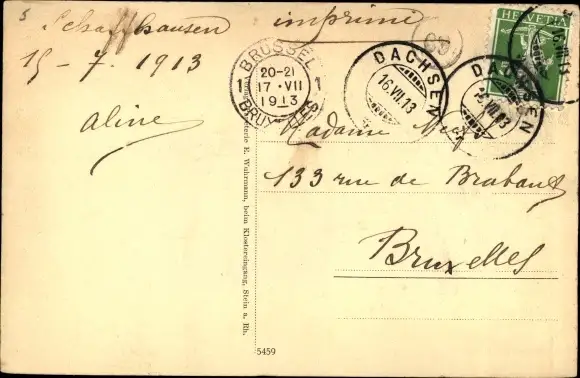 5
Schaffhausen
15-7.1913
aline
imprimé
BRÜSSEL
20-21
1 17·VII 1
1913
BRUXELLES
DACHSEN
16.VII.13
DACHSEN
16.VII.13
HELVETIA
Madame
133 rue de Brabant
Bruxelles
E. Wuhrmann, beim Klostereingang, Stein a. Rh.
5459